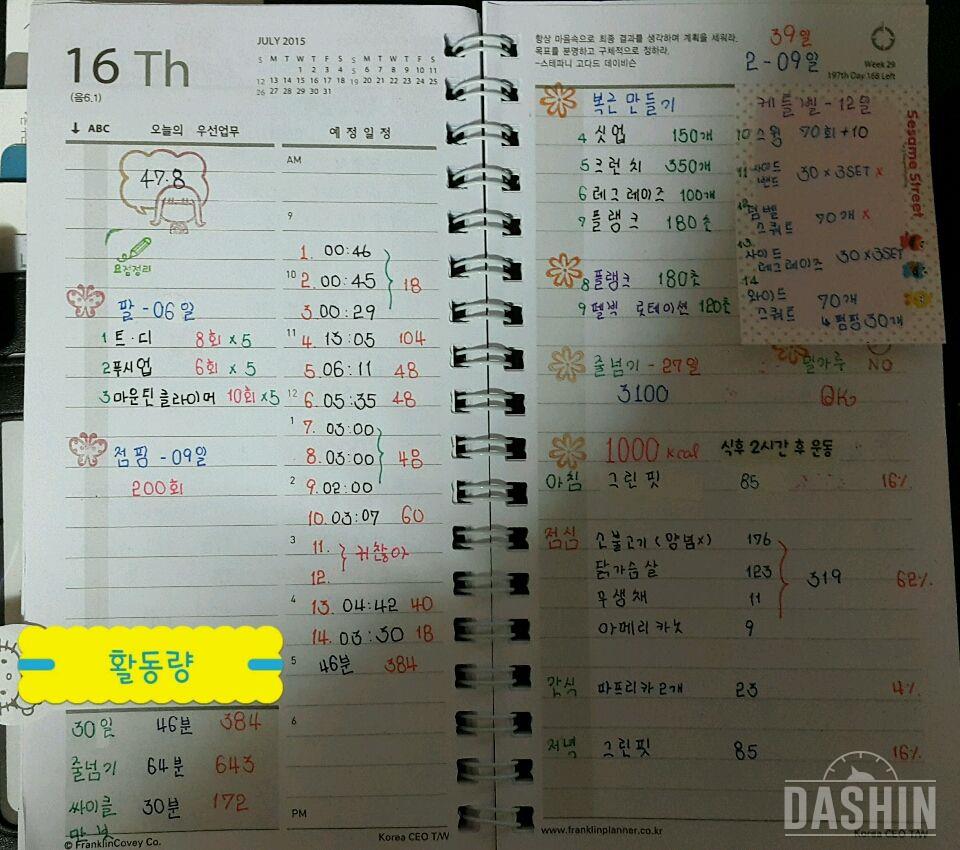 16 Th
(음6.1)
JULY 2015
S M T W T F S S M T W T F S
1 2 3 4 5 6 7 8 9 10 11
12 13 14 15 16 17 18 19 20 21 22 23 24 25
26 27 28 29 30 31
↓ ABC 오늘의 우선업무
47.8
요점정리
팔 - 06일
1 트.디 8회 x5
2 푸시업 6회 x 5
3 마운틴클라이머 10회 x5
점핑 - 09일
200회
활동량
30일 46분 384
줄넘기 64분 643
싸이클 30분 172
© FranklinCovey Co.
예정일정
AM
9
1. 00:46
10 2. 00:45 18
3. 00:29
11 4. 13:05 104
5. 06:11 48
12 6. 05:35 48
1 7. 03:00
8. 03:00 48
2 9. 02:00
10. 03:07 60
3 11. 귀찮아
12.
4 13. 04:42 40
14. 03:30 18
5 46분 384
6
PM
Korea CEO T/W
항상 마음속으로 최종 결과를 생각하며 계획을 세워라.
목표를 분명하고 구체적으로 청하라.
-스테파니 고다드 데이비슨
39일
2 - 09일
Week 29
197th Day 168 Left
복근 만들기
4 싯업 150개
5 크런치 350개
6 레그레이즈 100개
7 플랭크 180초
8 플랭크 180초
9 펠빅 로테이션 120초
케틀벨 - 12일
10 스윙 70회+10
11 사이드 밴드 30 x 3SET x
12 덤벨 스쿼트 70개 x
13 사이드 레그레이즈 30 x 3SET
14 와이드 스쿼트 70개
↳ 펌핑 30개
Sesame Street
줄넘기 - 27일
3100
밀가루 NO
OK
1000 kcal 식후 2시간 후 운동
아침 그린핏 85 16%
점심 소불고기 (양념x) 176
닭가슴살 123 319 62%
무생채 11
아메리카노 9
간식 파프리카 2개 23 4%
저녁 그린핏 85 16%
www.franklinplanner.co.kr
Korea CEO T/W
DASHIN